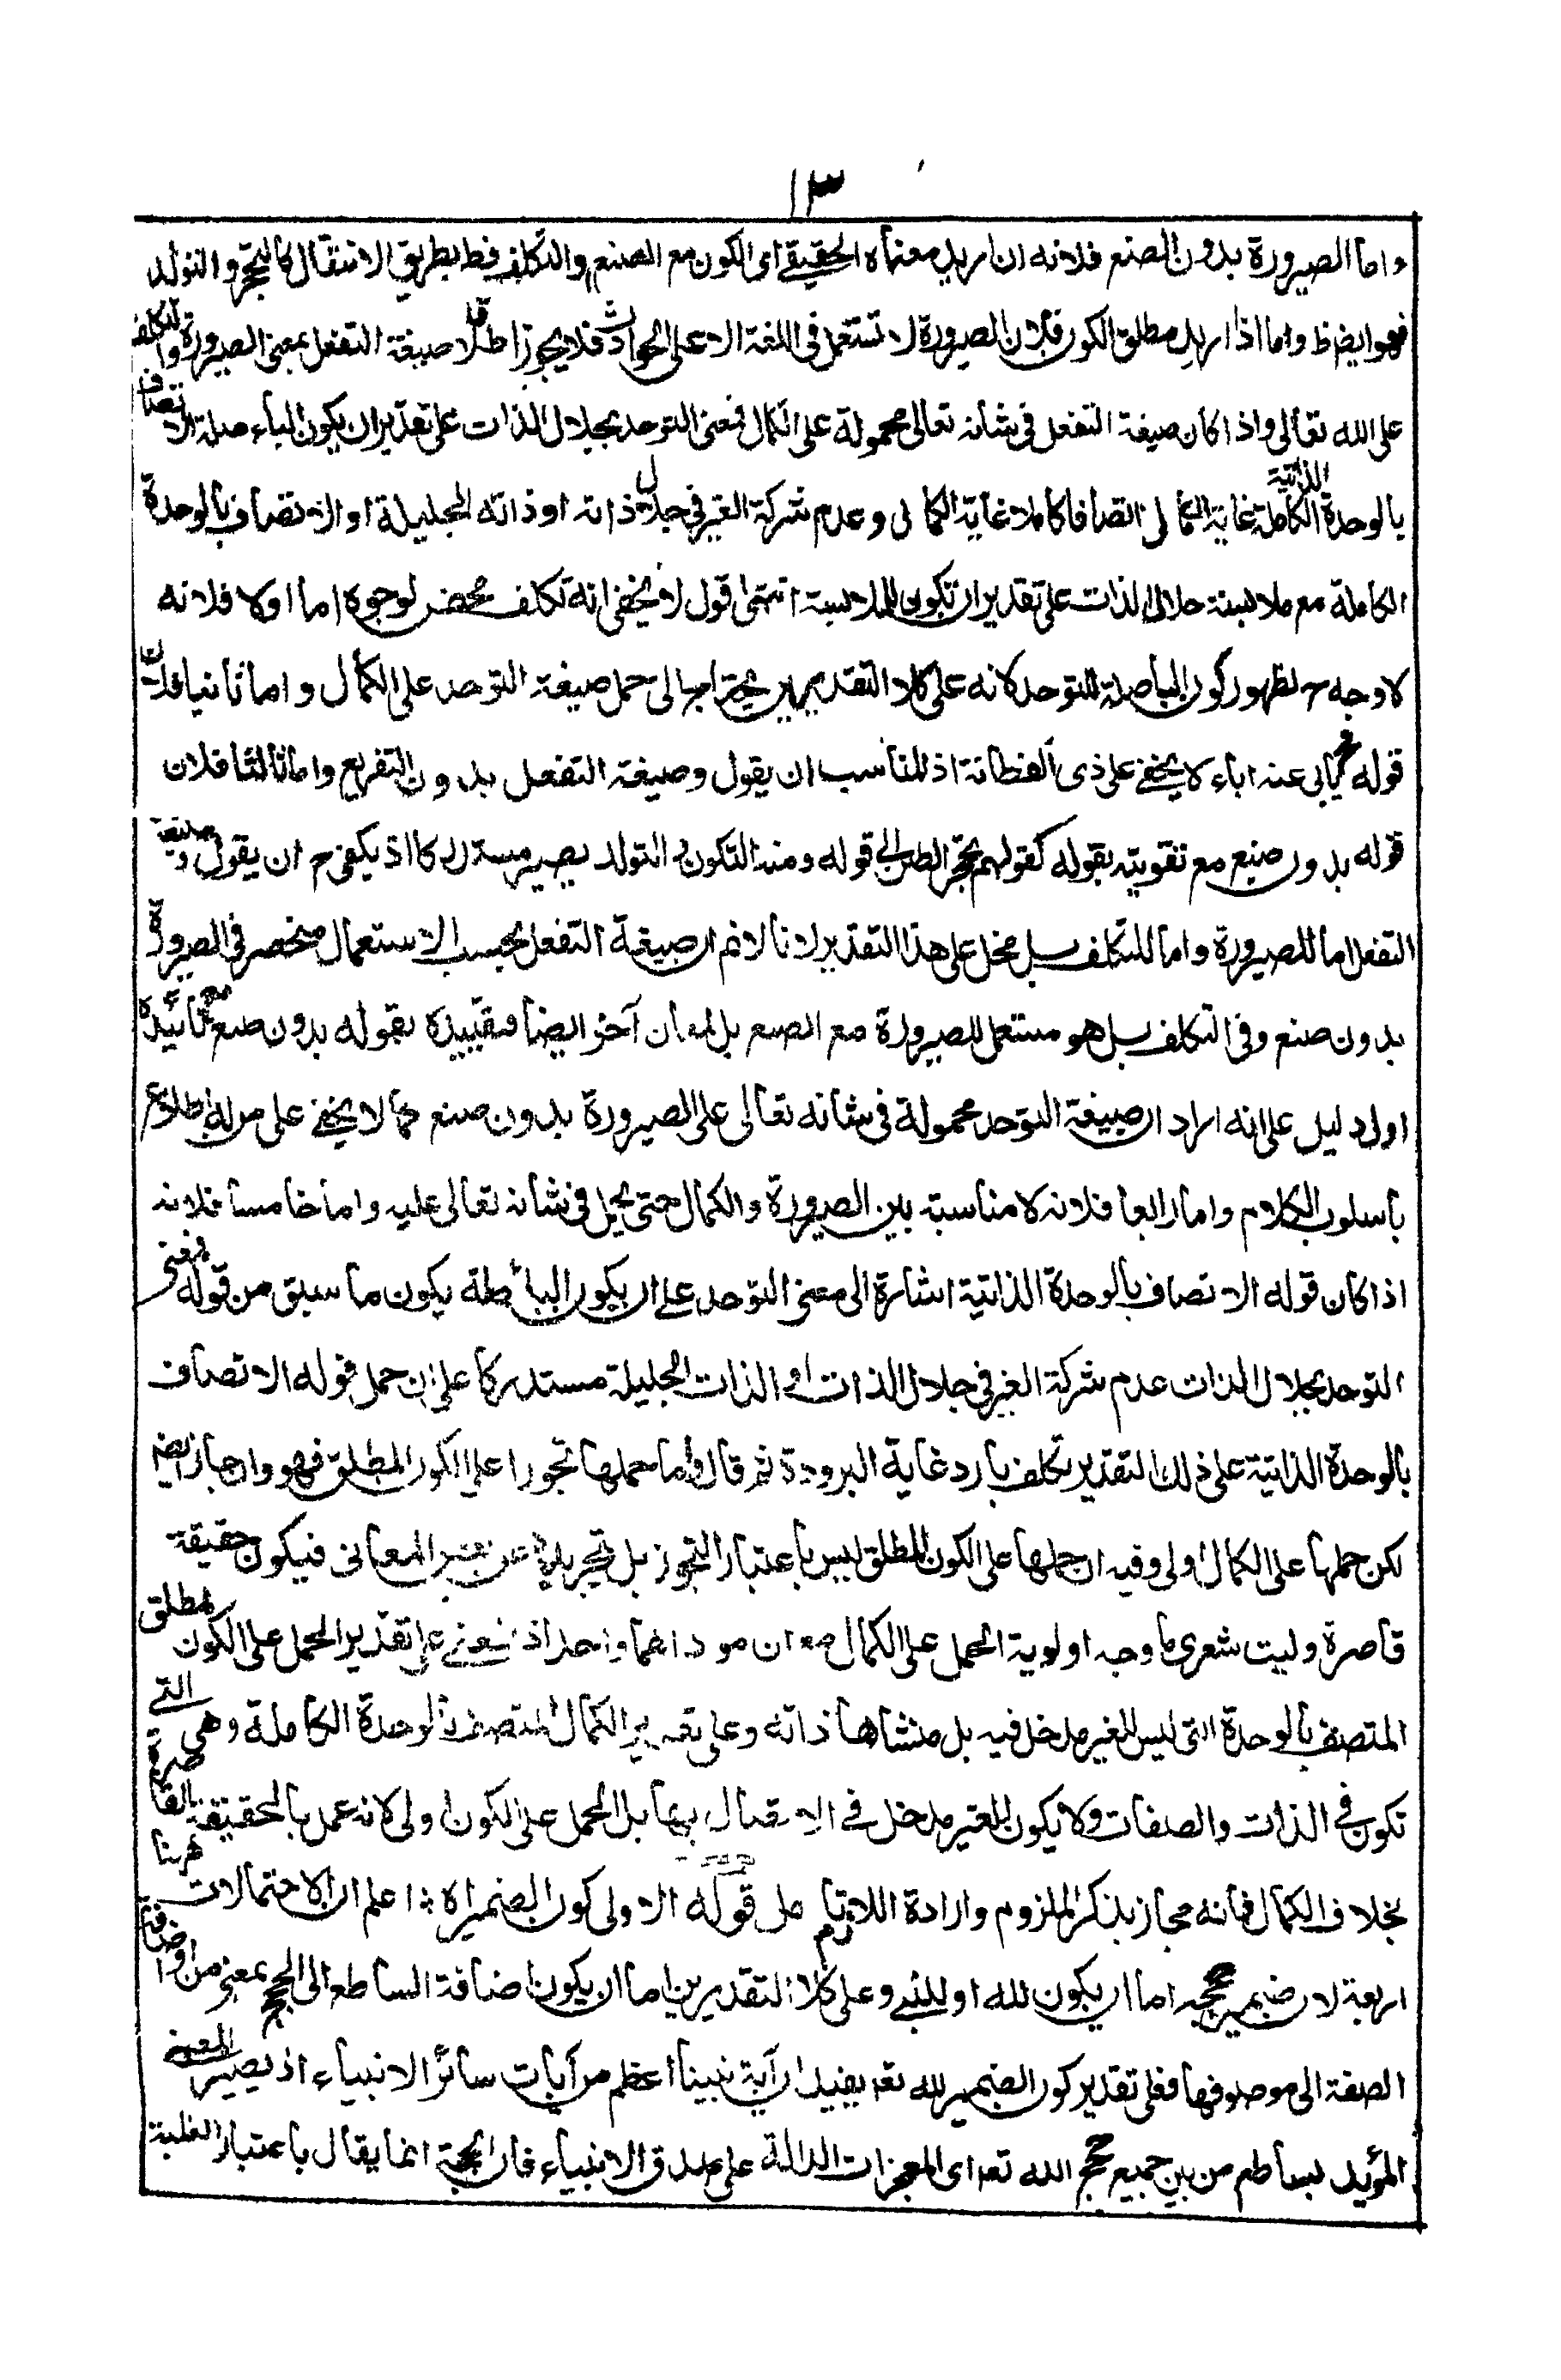 ١٣
واما الصيرورة بدون الصنع فلانه ان اريد معناه الحقيقي اى الكون مع الصنع والتكلف فظ بطريق الانتقال كالتحجر والتولد
فهو ايضظ واما اذا اريد مطلق الكون فلان الصيرورة لا تستعمل فى اللغة الا على الحوادث فلا يجوز اطلاق صيغة التفعل بمعنى الصيرورة والتكلف
على الله تعالى واذا كان صيغة التفعل فى شانه تعالى محمولة على الكمال فمعنى التوحد بجلال الذات على تقدير ان يكون الباء صلة الاتصاف
بالوحدة الذاتية الكاملة غاية الكمال اتصافا كاملا غاية الكمال وعدم شركة الغير فى جلال ذاته او ذاته الجليلة او الاتصاف بالوحدة
الكاملة مع ملابسة جلال الذات على تقدير ان تكون للملابسة انتهى اقول لا يخفى انه تكلف محض لوجوه اما اولا فلانه
لا وجه لظهور كون الباء صلة للتوحد لانه على كلا التقديرين يحتاج الى حمل صيغة التوحد على الكمال واما ثانيا فلان
قوله فح يابى عنه اباء لا يخفى على ذى الفطانة اذ المناسب ان يقول وصيغة التفعل بدون التفريع واما ثالثا فلان
قوله بدون صنع مع تقويته بقوله كقولهم تحجر الطين الى قوله ومنه التكون والتولد يصير مستدركا اذ يكفى ح ان يقول وصيغة
التفعل اما للصيرورة واما للتكلف بل مخل على هذا التقدير لانا لانم ان صيغة التفعل بحسب الاستعمال منحصر فى الصيرورة
بدون صنع وفى التكلف بل هو مستعمل للصيرورة مع الصنع بل لمعان آخر ايضا فتقييده بقوله بدون صنع مع تائيده
اول دليل على انه اراد ان صيغة التوحد محمولة فى شانه تعالى على الصيرورة بدون صنع كما لا يخفى على من له اطلاع
باسلوب الكلام واما رابعا فلانه لا مناسبة بين الصيرورة والكمال حتى يحمل فى شانه تعالى عليه واما خامسا فلانه
اذا كان قوله الاتصاف بالوحدة الذاتية اشارة الى معنى التوحد على ان يكون الباء صلة يكون ما سبق من قوله فمعنى
التوحد بجلال الذات عدم شركة الغير فى جلال الذات او الذات الجليلة مستدركا على ان حمل قوله الاتصاف
بالوحدة الذاتية على ذلك التقدير تكلف بارد غاية البرودة ثم قال واما حملها تجوزا على الكون المطلق فهو وان جاز ايضا
لكن حملها على الكمال اولى وفيه ان حملها على الكون المطلق ليس باعتبار التجوز بل تجريده عن بعض المعانى فيكون حقيقة
قاصرة وليت شعرى ما وجه اولوية الحمل على الكمال مع ان موداهما واحد اذ المعنى على تقدير الحمل على الكون المطلق
المتصف بالوحدة التى ليس للغير مدخل فيه بل منشاها ذاته وعلى تقدير الكمال المتصف بالوحدة الكاملة وهى التى
تكون فى الذات والصفات ولا يكون للغير مدخل فى الاتصاف بها بل الحمل على الكون اولى لانه عمل بالحقيقة القاصرة
بخلاف الكمال فانه مجاز بذكر الملزوم وارادة اللازم تامل قوله الاولى كون الضمير اه اعلم ان الاحتمالات ههنا
اربعة لان ضمير حججه اما ان يكون لله او للنبى وعلى كلا التقديرين اما ان يكون اضافة الساطع الى الحجج بمعنى من او اضافة
الصفة الى موصوفها فعلى تقدير كون الضمير لله تعه يفيد ان آية نبينا اعظم من آيات سائر الانبياء اذ يصير المعنى
المؤيد بساطع من بين جميع حجج الله تعه اى المعجزات الدالة على صدق الانبياء فان الحجة انما يقال باعتبار الغلبة